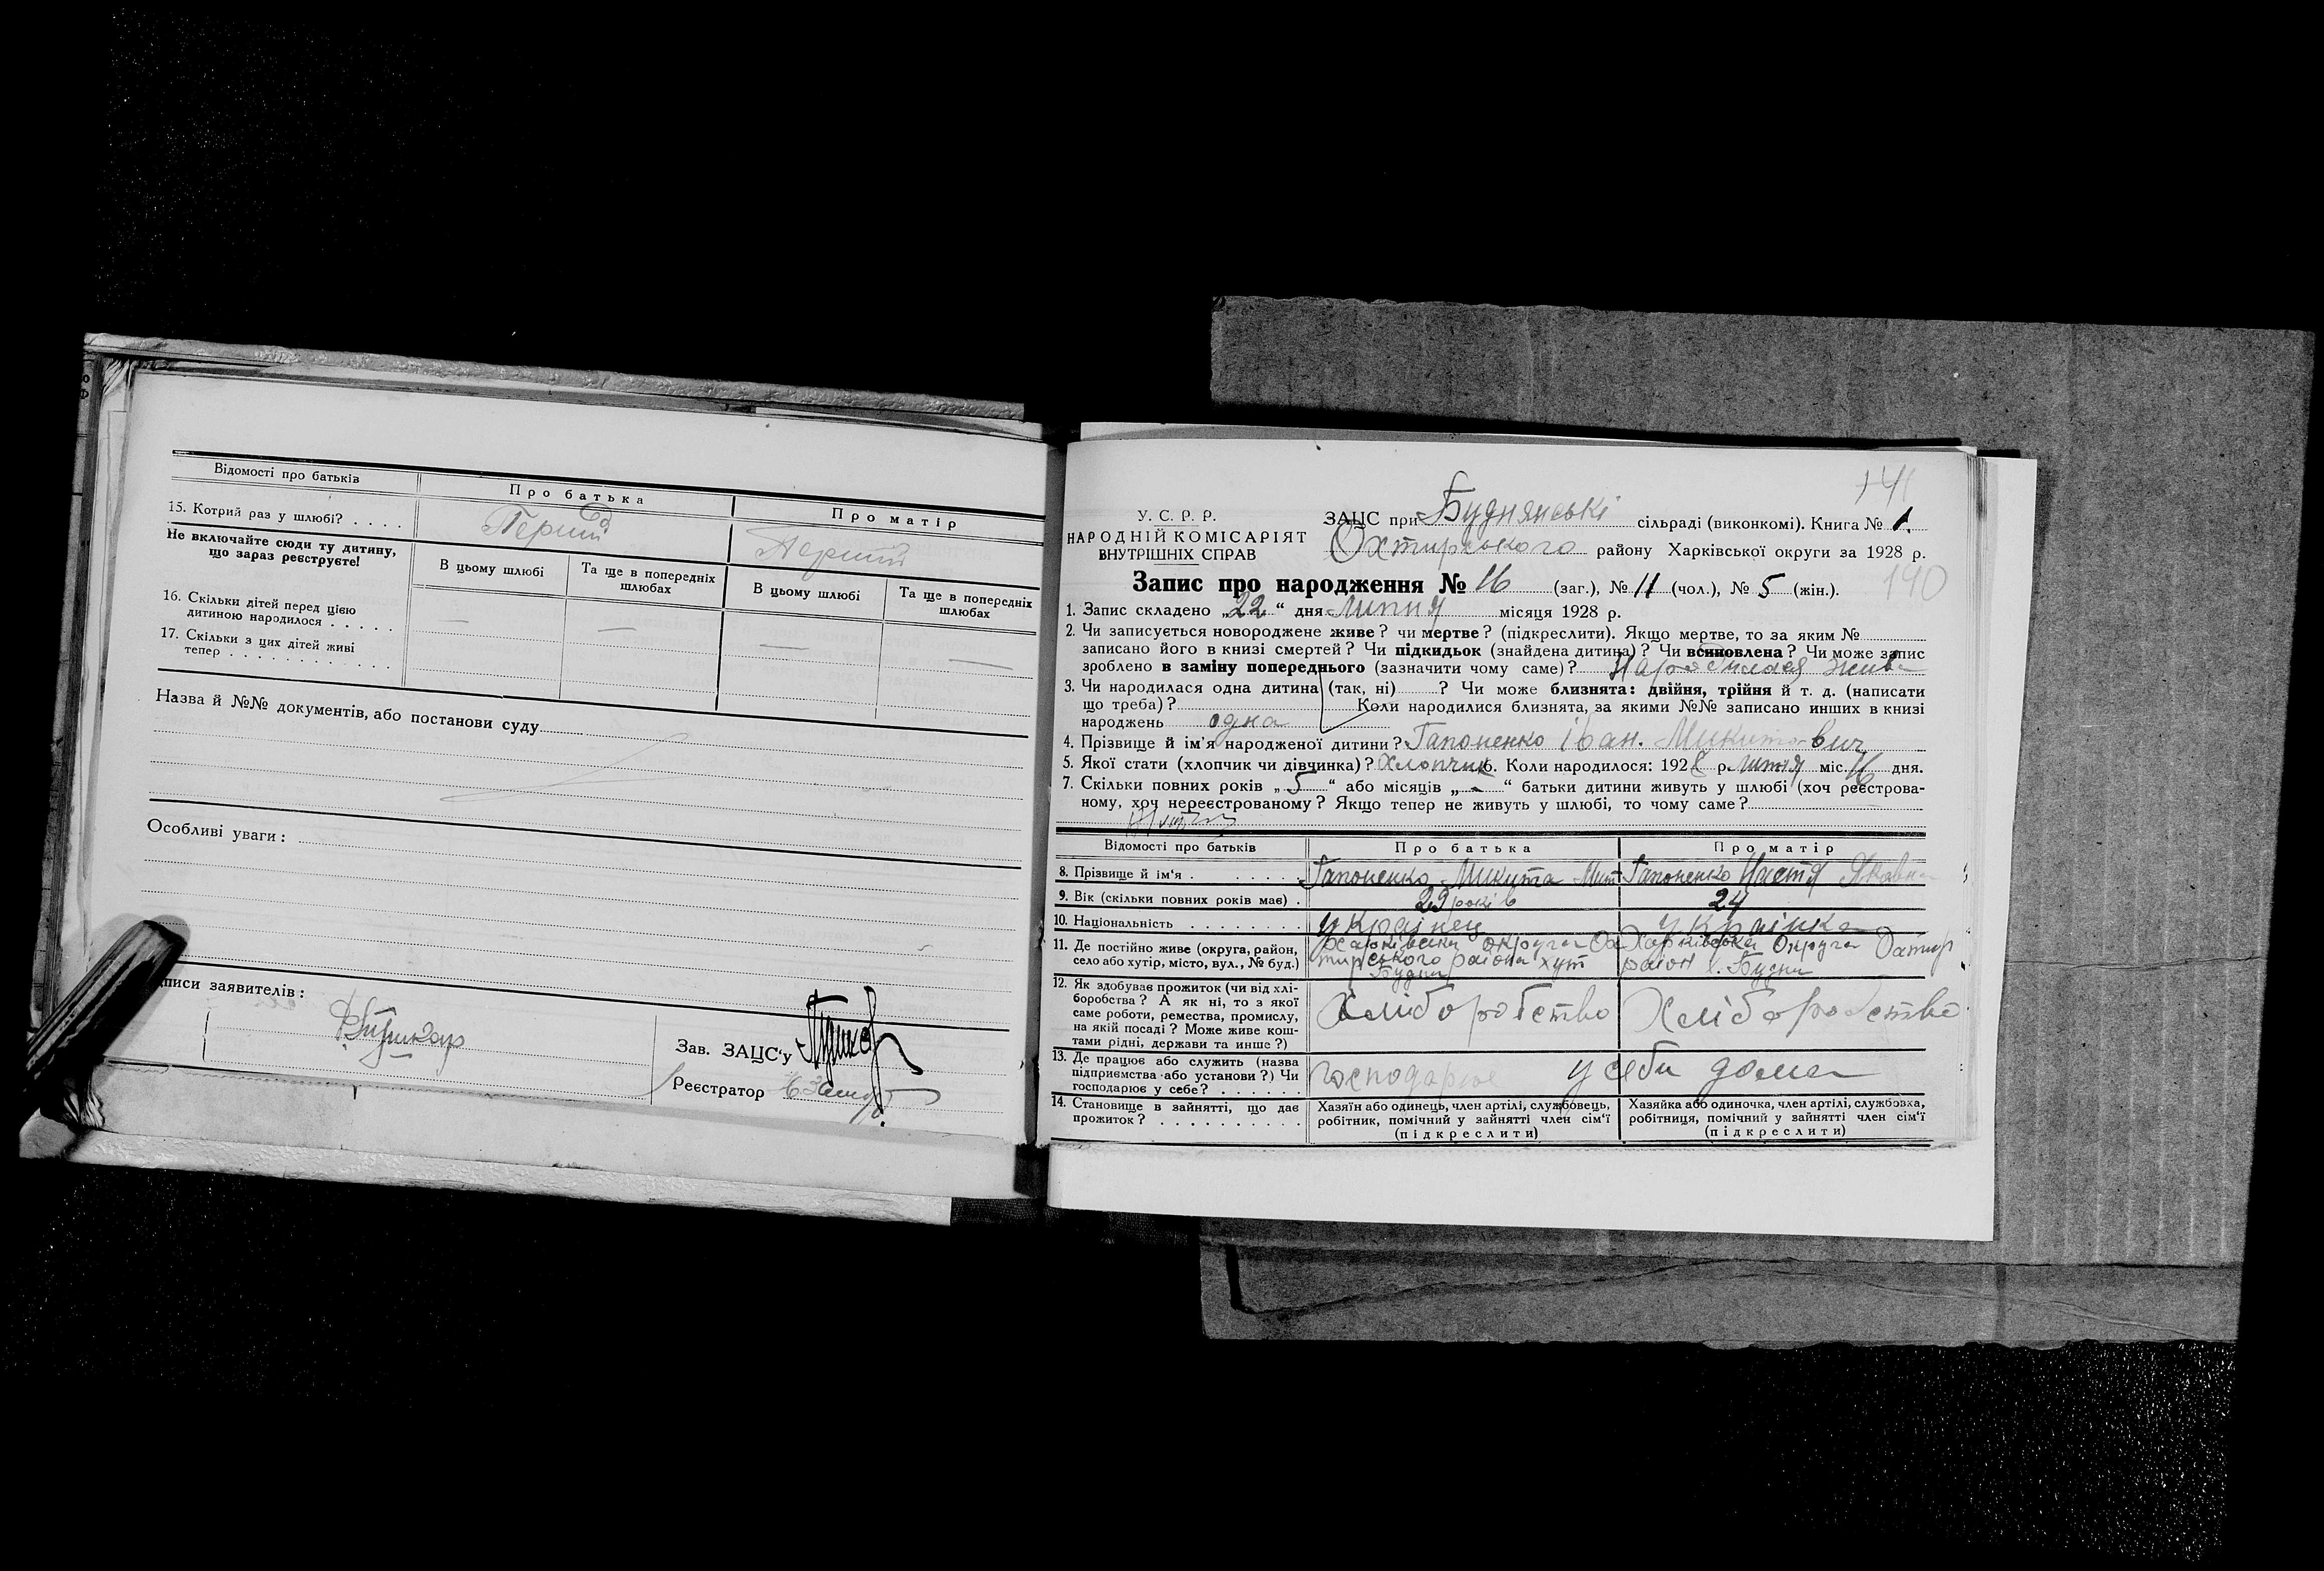 Відомості про батьків
Про батька
Про матір
15. Котрий раз у шлюбі? . . . .
Перший
Перший
Не включайте сюди ту дитину,
що зараз реєструєте!
В цьому шлюбі
Та ще в попередніх
шлюбах
В цьому шлюбі
Та ще в попередніх
шлюбах
16. Скільки дітей перед цією
дитиною народилося . . . . .
—
—
—
—
17. Скільки з цих дітей живі
тепер . . . . . . . . . . . .
Назва й №№ документів, або постанови суду
Особливі уваги:
писи заявителів:
Зав. ЗАЦС'у
Реєстратор
141
У. С. Р. Р.
НАРОДНІЙ КОМІСАРІЯТ
ВНУТРІШНІХ СПРАВ
ЗАЦС при Буднянські сільраді (виконкомі). Книга № 1.
Охтирського району Харківської округи за 1928 р.
140
Запис про народження № 16 (заг.), № 11 (чол.), № 5 (жін.).
1. Запис складено „22“ дня липня місяця 1928 р.
2. Чи записується новороджене живе? чи мертве? (підкреслити). Якщо мертве, то за яким №
записано його в книзі смертей? Чи підкидьок (знайдена дитина)? Чи всиновлена? Чи може запис
зроблено в заміну попереднього (зазначити чому саме)? Народилася жива
3. Чи народилася одна дитина (так, ні) ? Чи може близнята: двійня, трійня й т. д. (написати
що треба)? Коли народилися близнята, за якими №№ записано инших в книзі
народжень одна
4. Прізвище й ім'я народженої дитини? Гапоненко Іван. Микитович
5. Якої стати (хлопчик чи дівчинка)? Хлопчик 6. Коли народилося: 1928 р. липня міс. 16 дня.
7. Скільки повних років „5“ або місяців „-“ батьки дитини живуть у шлюбі (хоч реєстрова-
ному, хоч нереєстрованому? Якщо тепер не живуть у шлюбі, то чому саме?
Відомості про батьків
Про батька
Про матір
8. Прізвище й ім'я . . . . . . .
Гапоненко Микита Мит
Гапоненко Настя
9. Вік (скільки повних років має) .
29 років
24
10. Національність . . . . . . . .
Українец
Українка
11. Де постійно живе (округа, район,
село або хутір, місто, вул., № буд.)
Харківська округа Ох
тирського района хут
Будни
Харківська Округа Охтир
район х. Будни
12. Як здобуває прожиток (чи від хлі-
боробства? А як ні, то з якої
саме роботи, ремества, промислу,
на якій посаді? Може живе кош-
тами рідні, держави та инше?)
Хліборобство
Хліборобство
13. Де працює або служить (назва
підприємства або установи?) Чи
господарює у себе? . . . . . .
господарює у себи дома
14. Становище в зайнятті, що дає
прожиток? . . . . . . . . . .
Хазяїн або одинець, член артілі, службовець,
робітник, помічний у зайнятті член сім'ї
(підкреслити)
Хазяйка або одиночка, член артілі, службовка,
робітниця, помічний у зайнятті член сім'ї
(підкреслити)